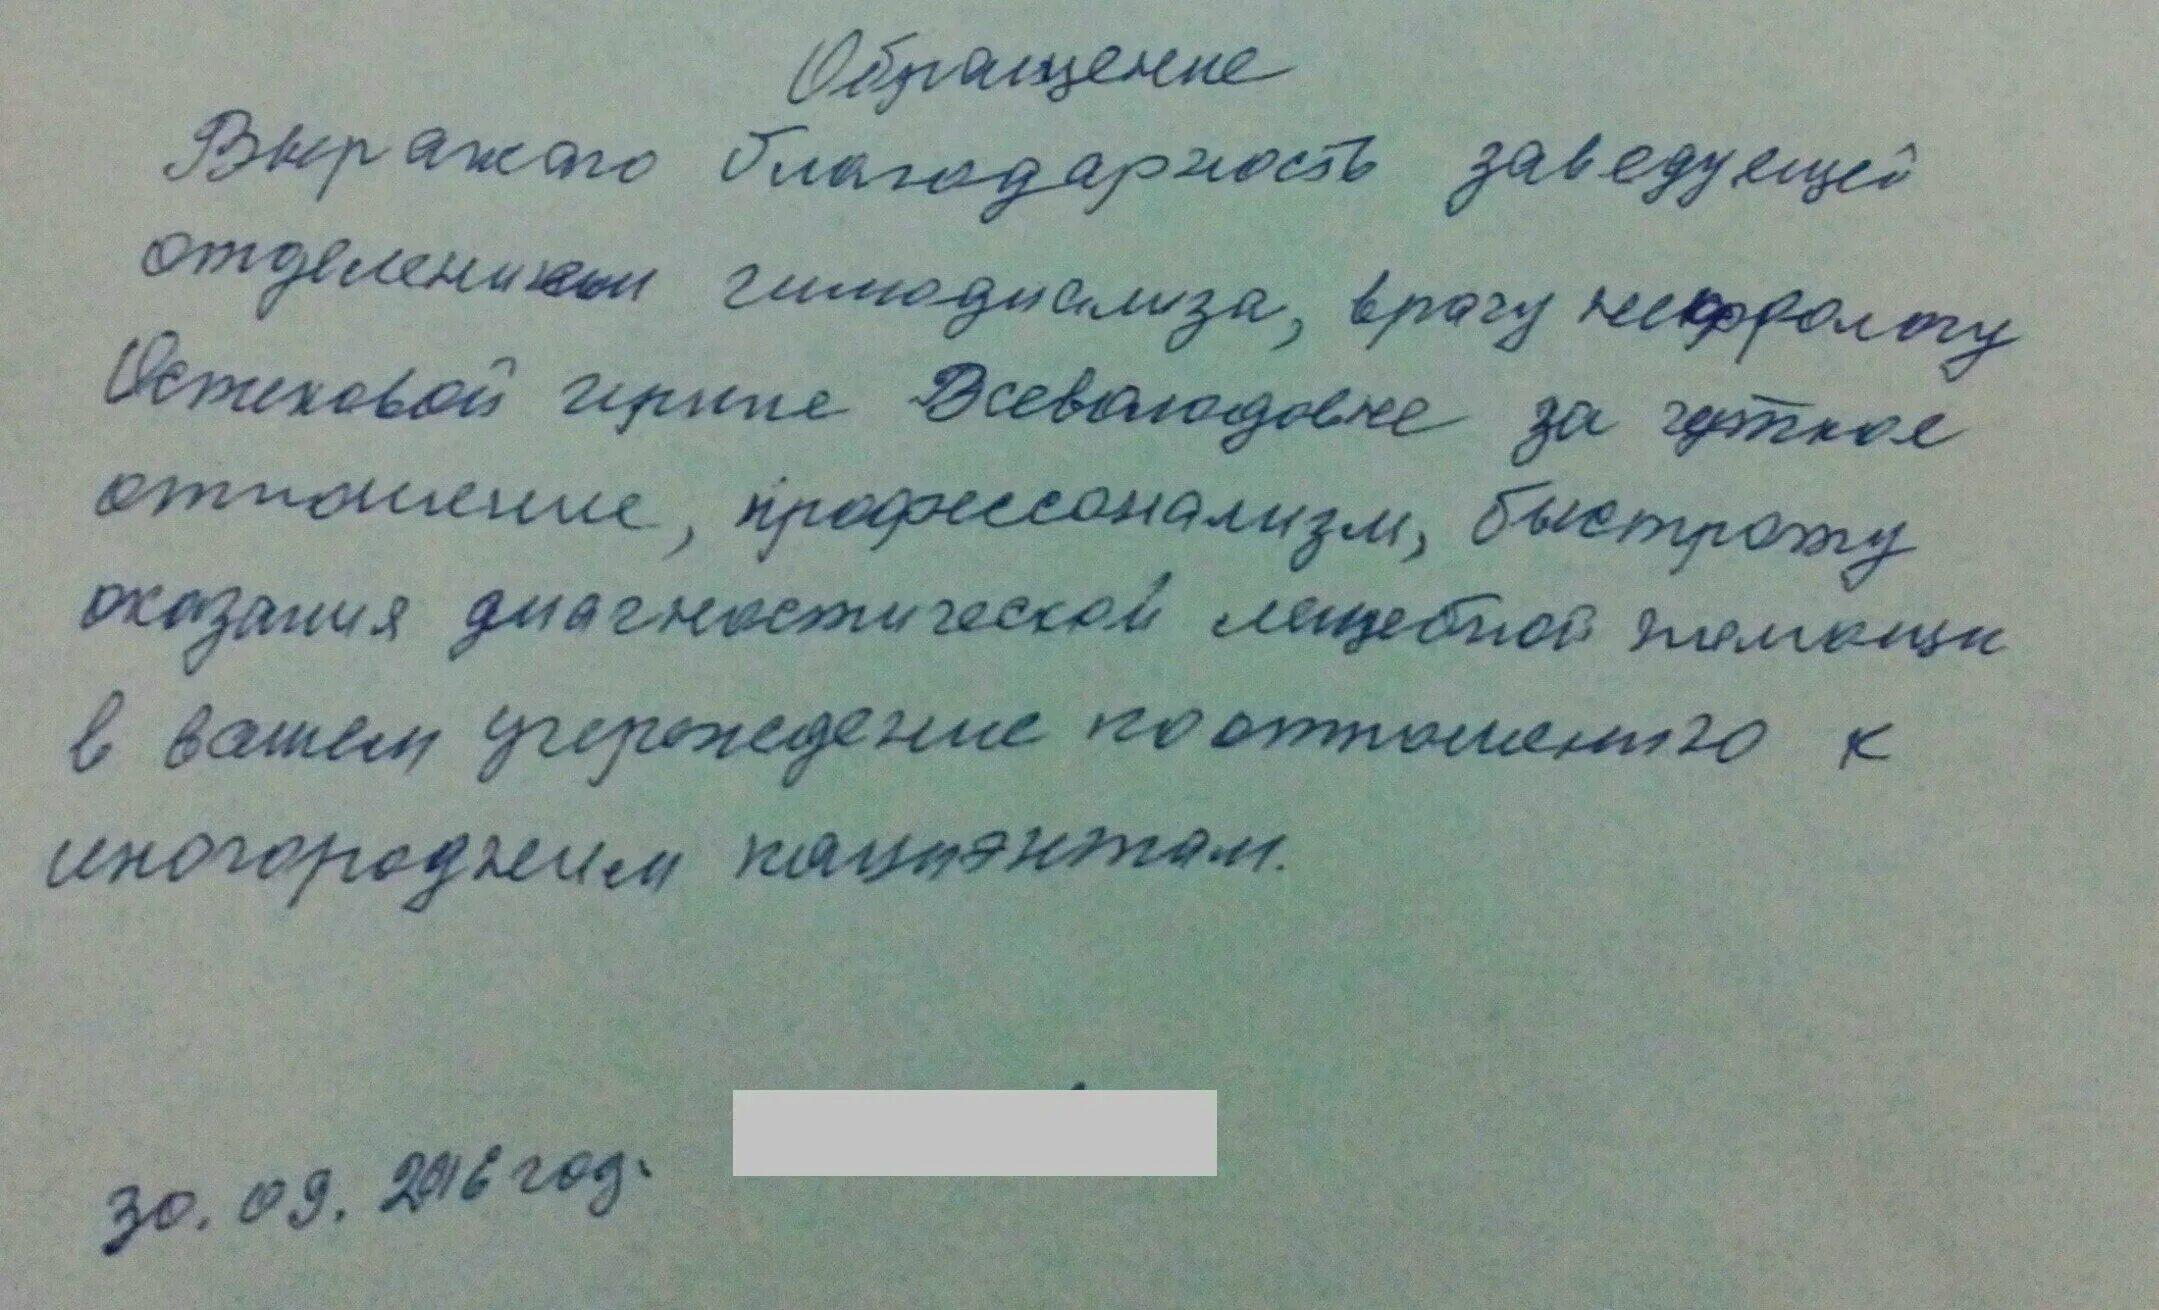 Обращение
Выражаю благодарность заведующей
отделением гимодиализа, врачу нефрологу
Остеховой Ирине Всеволодовне за чуткое
отношение, профессонализм, быстроту
оказания диагностической лещебной помощи
в вашем учереждение по отношению к
иногородним пациэнтам.
30.09.2016 год.